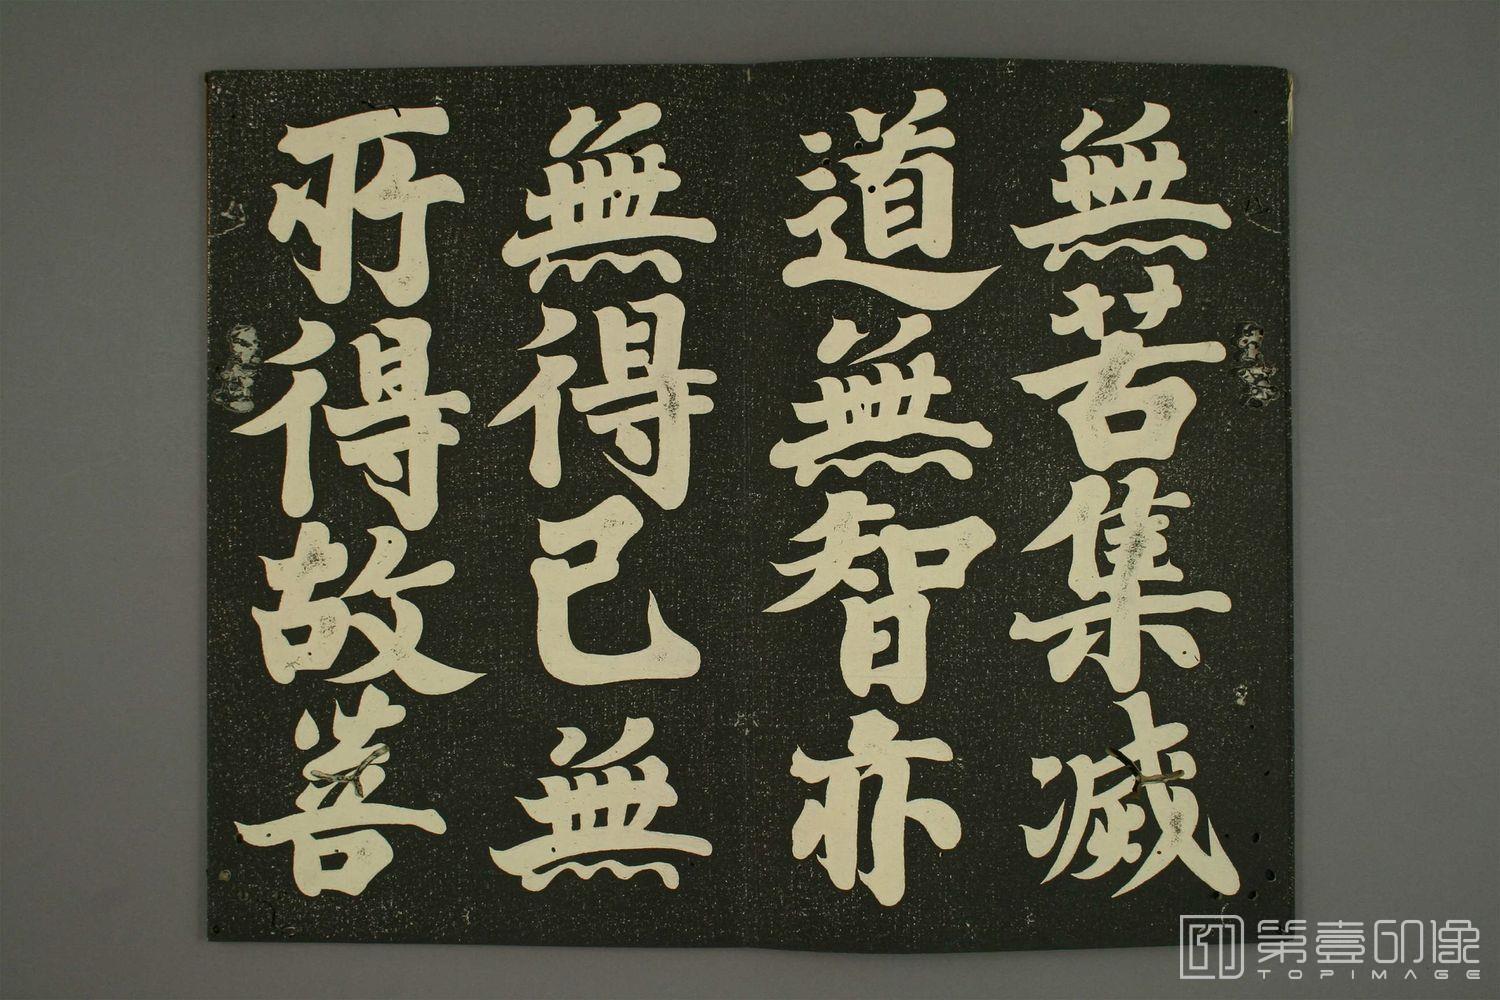 無苦集滅
道無智亦
無得已無
所得故菩
第壹印像
TOPIMAGE